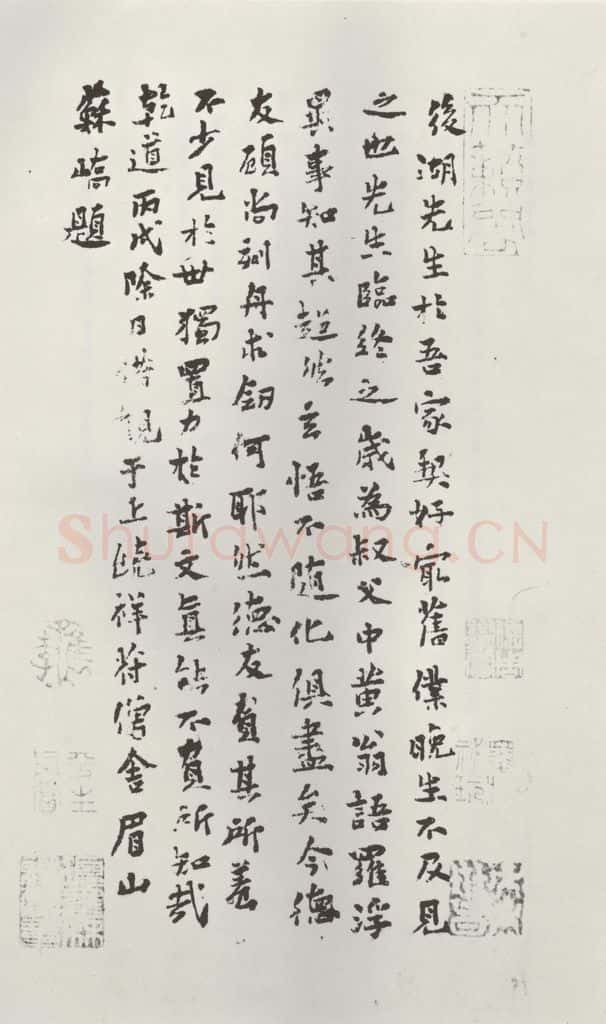 後湖先生於吾家契好寂舊僕晚生不及見
之也先生臨終之歲為叔父中黄翁語羅浮
異事知其超然玄悟不随化俱盡矣今德
友顧尚刻舟求劍何耶然德友負其所蓄
不少見於世獨置力於斯文真能不負所知哉
乾道丙戌除日 觀于上饒祥符僧舍眉山
蘇嶠題
Shufawang.CN